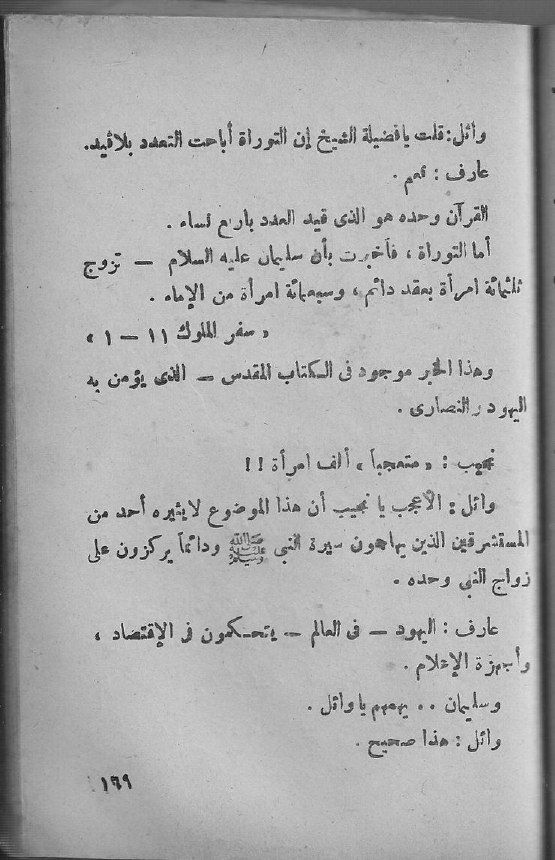 وائل: قلت يا فضيلة الشيخ إن التوراة أباحت التعدد بلا قيد.
عارف : نعم .
القرآن وحده هو الذى قيد العدد بأربع نساء .
أما التوراة ، فأخبرت بأن سليمان عليه السلام — تزوج
ثلثمائة امرأة بعقد دائم ، وسبعمائة امرأة من الإماء .
« سفر الملوك ١١ — ١ »
وهذا الخبر موجود فى الكتاب المقدس — الذى يؤمن به
اليهود والنصارى .
نجيب : « متعجباً » ألف امرأة ! !
وائل : الأعجب يا نجيب أن هذا الموضوع لا يثيره أحد من
المستشرقين الذين يهاجمون سيرة النبى ﷺ ودائماً يركزون على
زواج النبى وحده .
عارف : اليهود — فى العالم — يتحكمون فى الإقتصاد ،
وأجهزة الإعلام .
وسليمان .. يهمهم يا وائل .
وائل : هذا صحيح .
١٦٩